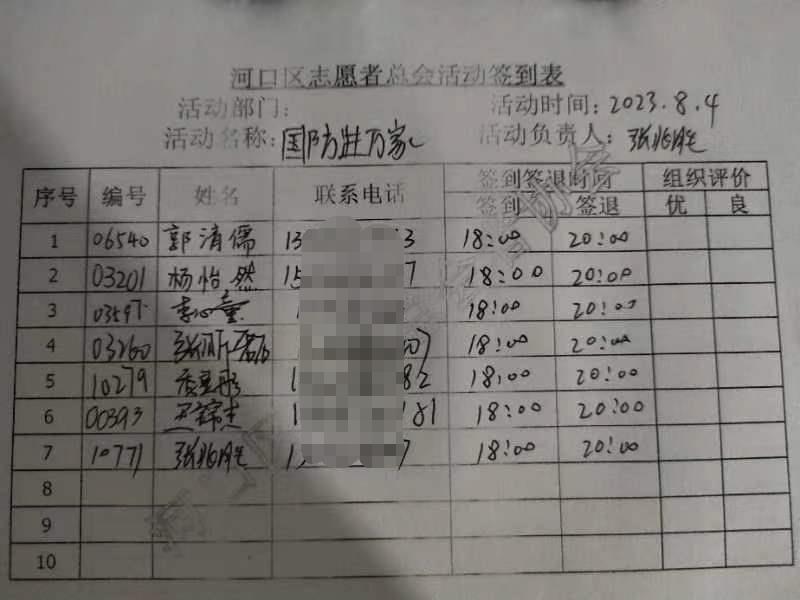 河口区志愿者总会活动签到表
活动部门： 活动时间：2023.8.4
活动名称：国防进万家 活动负责人：张兆胜
序号 编号 姓名 联系电话 签到签退时间 组织评价
签到 签退 优 良
1 06540 郭清儒 13 3 18:00 20:00
2 03201 杨怡然 15 7 18:00 20:00
3 18:00 20:00
4 03260 18:00 20:00
5 10279 1 82 18:00 20:00
6 00393 1 181 18:00 20:00
7 10771 张兆胜 7 18:00 20:00
8
9
10